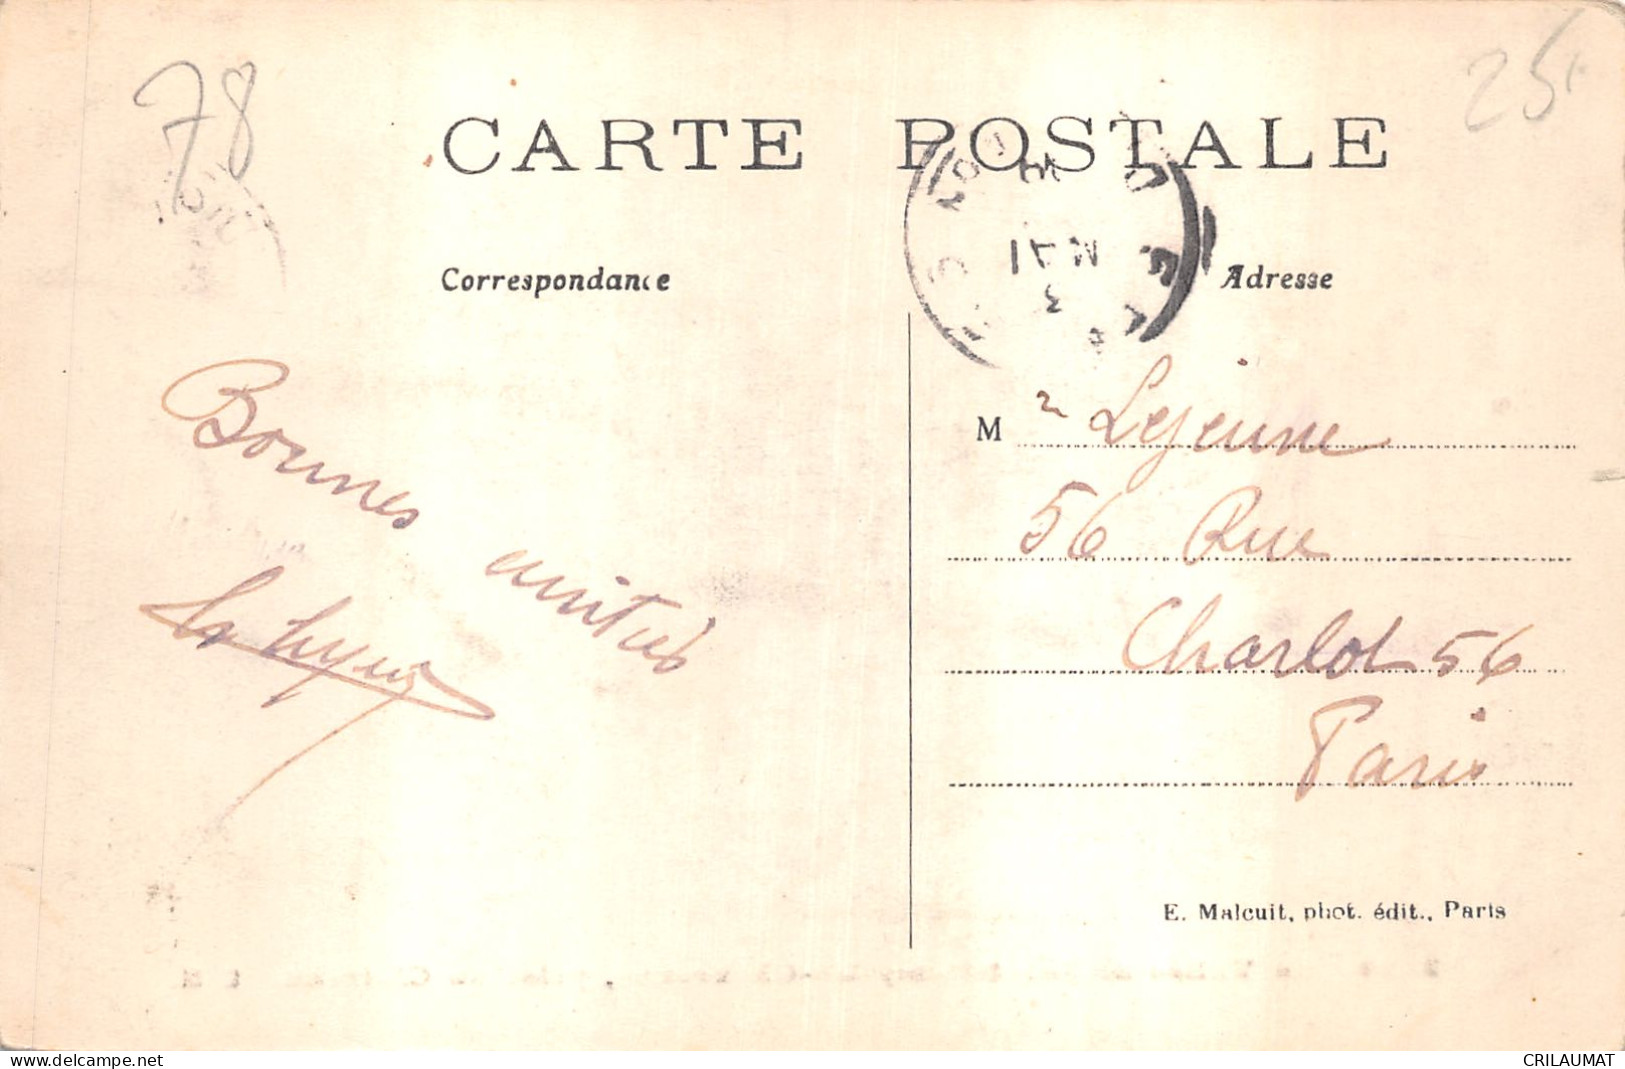 78
25
CARTE POSTALE
Correspondance
Adresse
3
MAI
Bonnes amitiés
M r Lejeune
56 Rue
Charlot 56
Paris
E. Malcuit, phot. édit., Paris
www.delcampe.net
CRILAUMAT